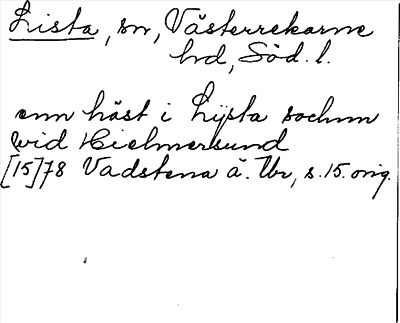 Lista, sn, Västerrekarne
hd, Söd. l.
enn häst i Lijsta sochnn
wid Hielmersund
[15]78 Vadstena ä. Ur, s. 15. orig.